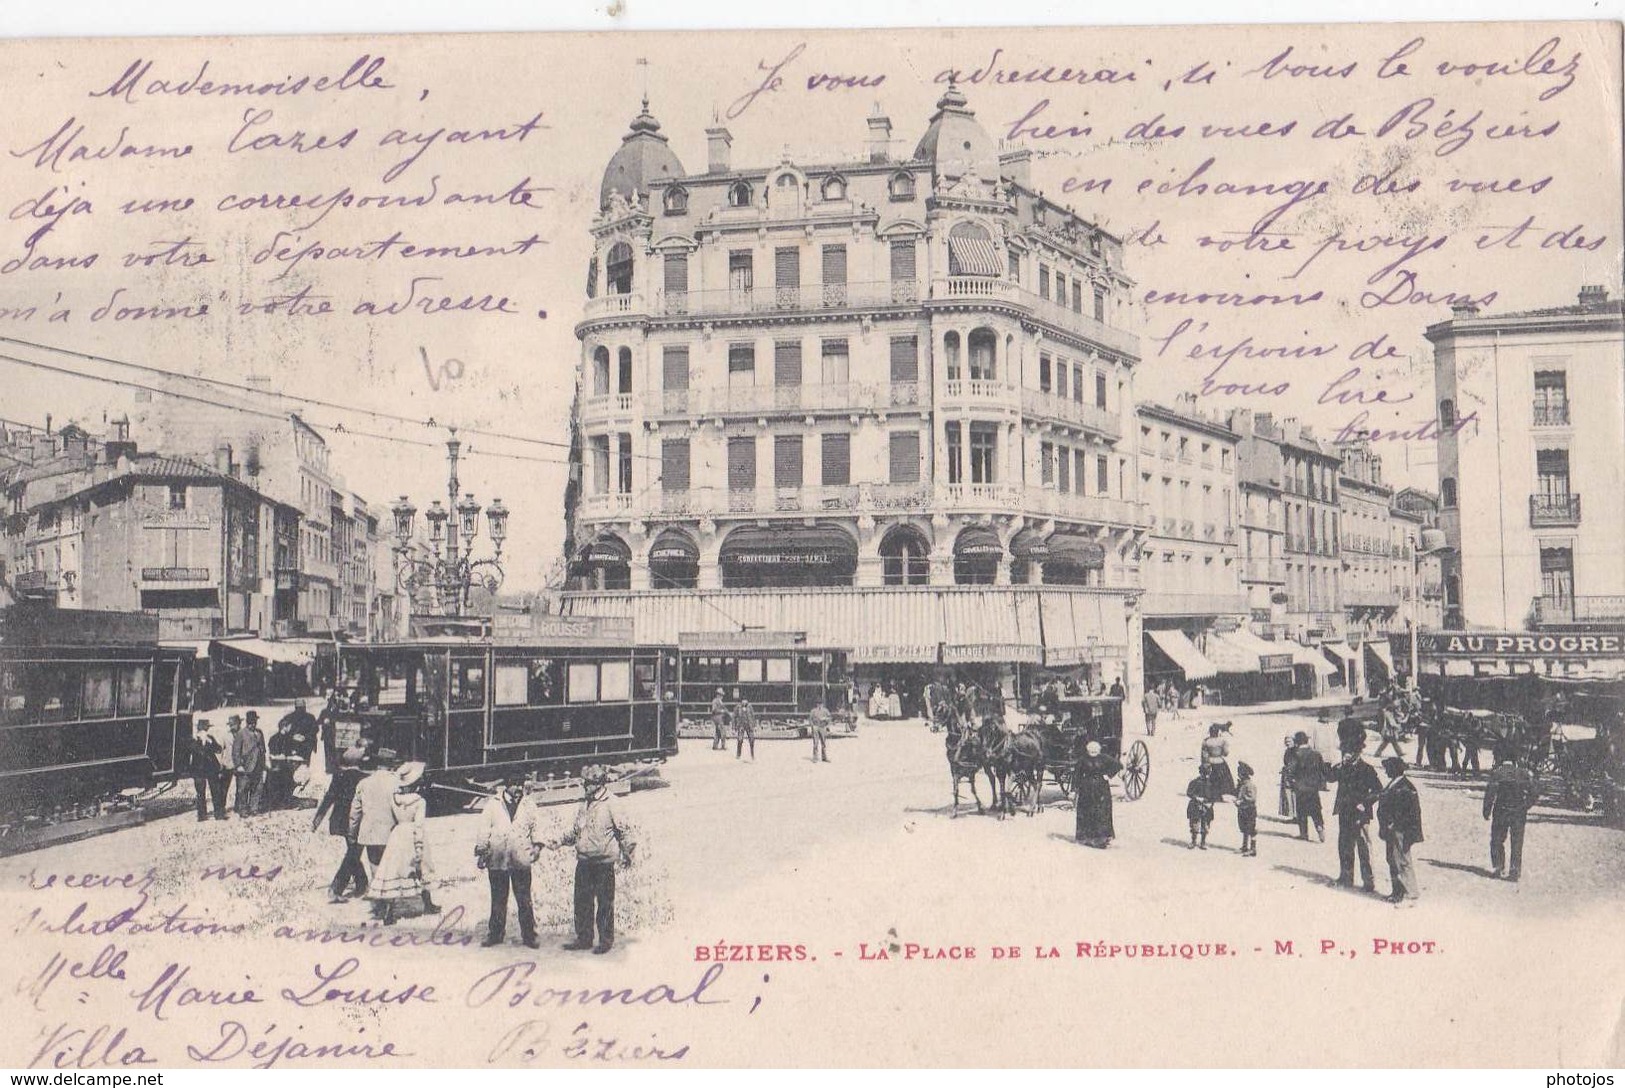 Mademoiselle,
Madame Cazes ayant
déja une correspondante
dans votre département
m'a donné votre adresse.
Je vous adresserai, si vous le voulez
bien, des vues de Béziers
en échange des vues
de votre pays et des
environs. Dans
l'espoir de
vous lire
bientôt
10
ROUSSE
AU PROGRE
recevez mes
salutations amicales
Melle Marie Louise Bonnal;
Villa Déjanire Béziers
BÉZIERS. - LA PLACE DE LA RÉPUBLIQUE. - M. P., PHOT.
photojos